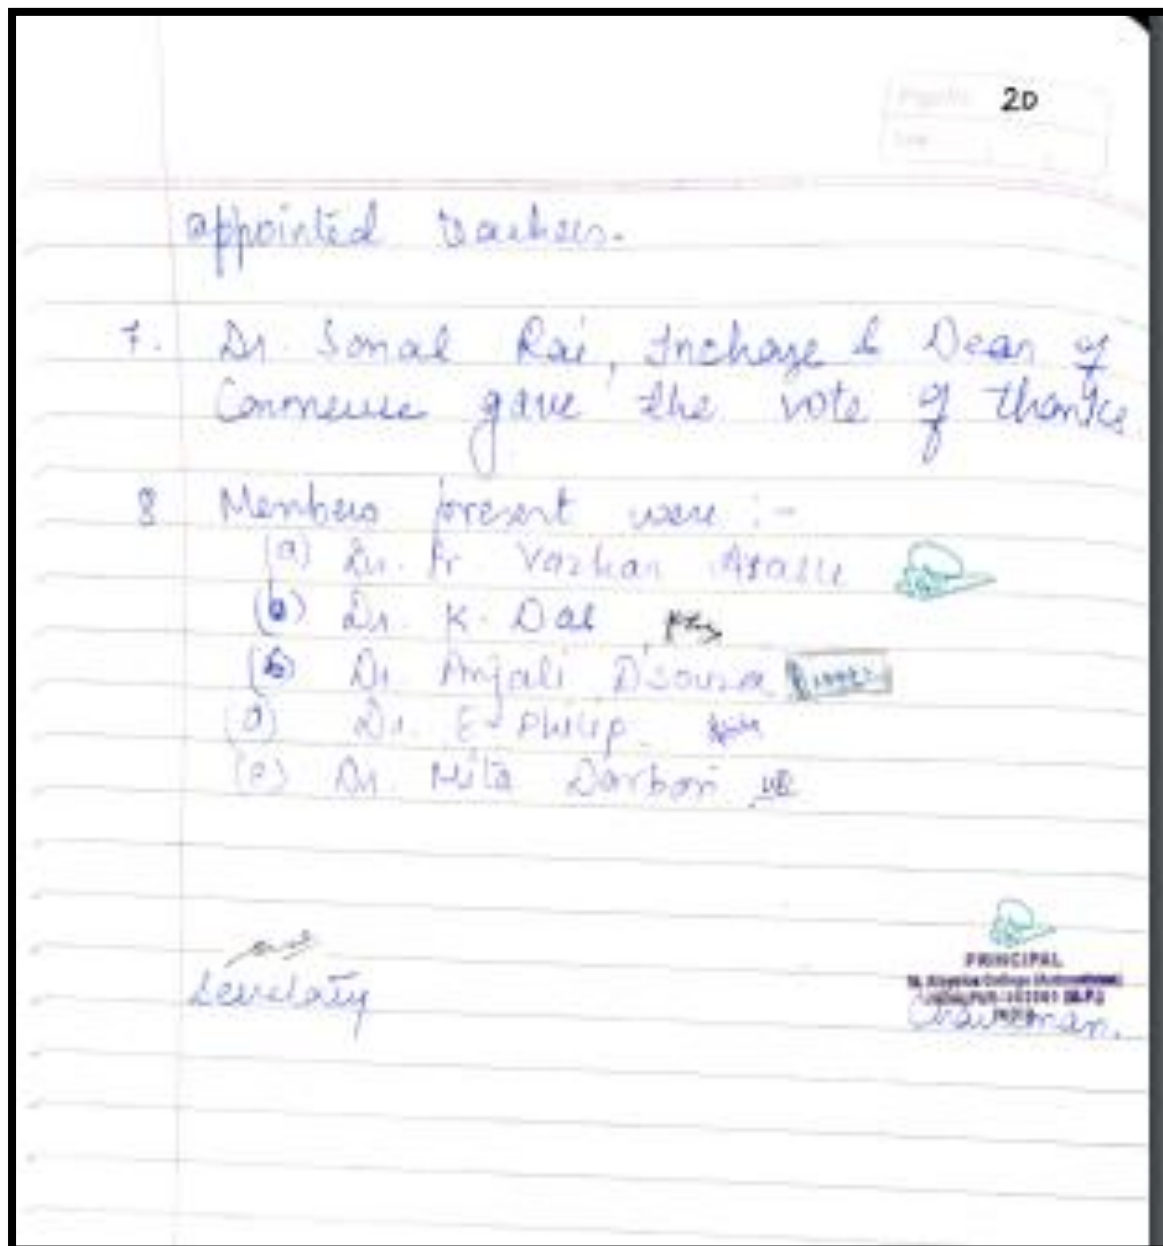 20
appointed teachers.
7. Dr. Sonal Rai, Incharge & Dean of
Commerce gave the vote of thanks.
8 Members present were :-
(a) Dr. Fr. Vazhan Arasu
(b) Dr. K. Dal
Dr. Anjali Dsouza
(d) Dr. E. Philip
(e) Dr. Mita Darbari
Secretary
PRINCIPAL
Chairman.